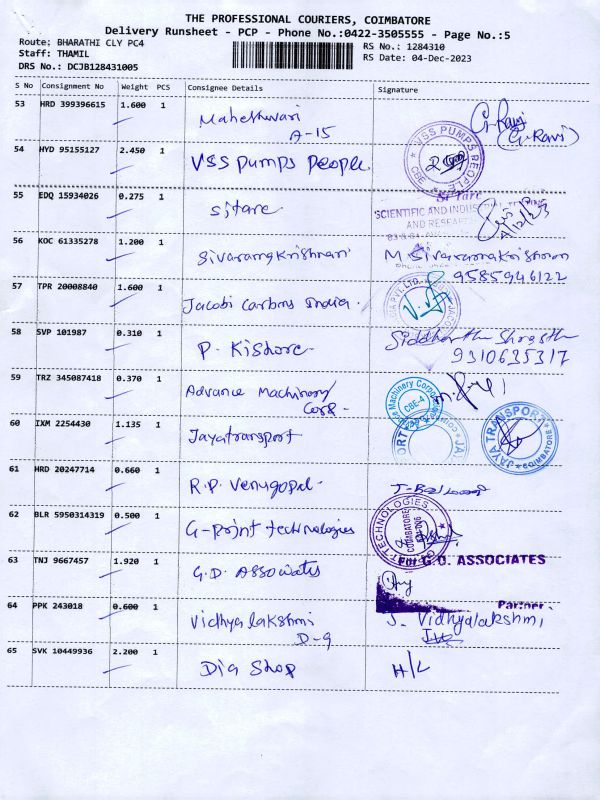 THE PROFESSIONAL COURIERS, COIMBATORE
Delivery Runsheet - PCP - Phone No.:0422-3505555 - Page No.:5
Route: BHARATHI CLY PC4
RS No.: 1284310
Staff: THAMIL
RS Date: 04-Dec-2023
DRS No.: DCJB128431005
S No Consignment No Weight PCS Consignee Details Signature
53 HRD 399396615 1.600 1 Maheshwari
A-15
G. Ravi
(G. Ravi)
54 HYD 95155127 2.450 1 VSS Pumps People
VSS PUMPS PEOPLE CBE
55 EDQ 15934026 0.275 1 Sitare
Si Tarc
SCIENTIFIC AND INDUS
AND RESEAR
4/12/23
56 KOC 61335278 1.200 1 Sivaramakrishnan
M Sivaramakrishnan
9585946122
57 TPR 20008840 1.600 1 Jacobi Carbons India.
58 SVP 101987 0.310 1 P. Kishore
Siddharth Shrasth
9310635317
59 TRZ 345087418 0.370 1 Advance Machinery
Corp.
Machinery Corpor
CBE-4
60 IXM 2254430 1.135 1 Jayatransport
JAYA TRANSPORT COIMBATORE
61 HRD 20247714 0.660 1 R.P. Venugopal
62 BLR 5950314319 0.500 1 G-Point Technologies
TECHNOLOGIES
COIMBATORE
63 TNJ 9667457 1.920 1 G.D. Associates
For G.D. ASSOCIATES
Partner
64 PPK 243018 0.600 1 Vidhyalakshmi
D-9
J. Vidhyalakshmi
65 SVK 10449936 2.200 1 Dia Shop
H/L